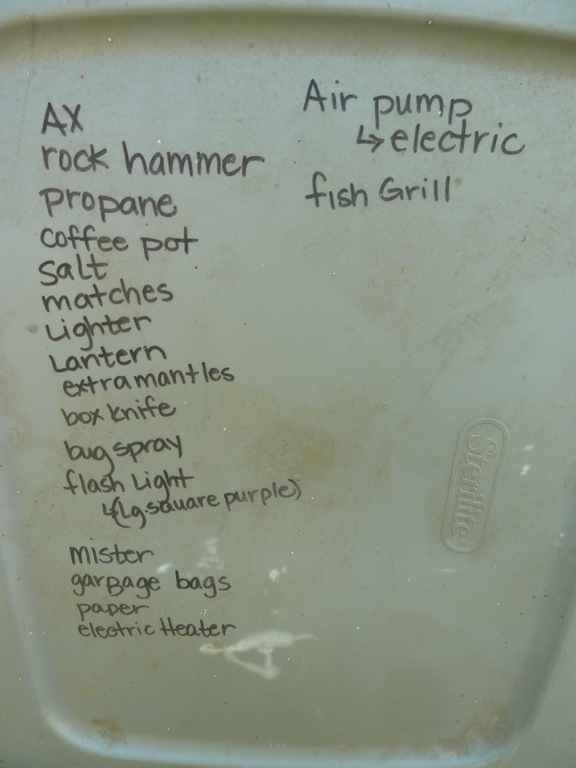 AX
rock hammer
propane
coffee pot
salt
matches
Lighter
Lantern
extra mantles
box knife
bug spray
flash Light
↳(Lg. square purple)
mister
garbage bags
paper
electric Heater
Air pump
↳ electric
fish Grill
Sterilite